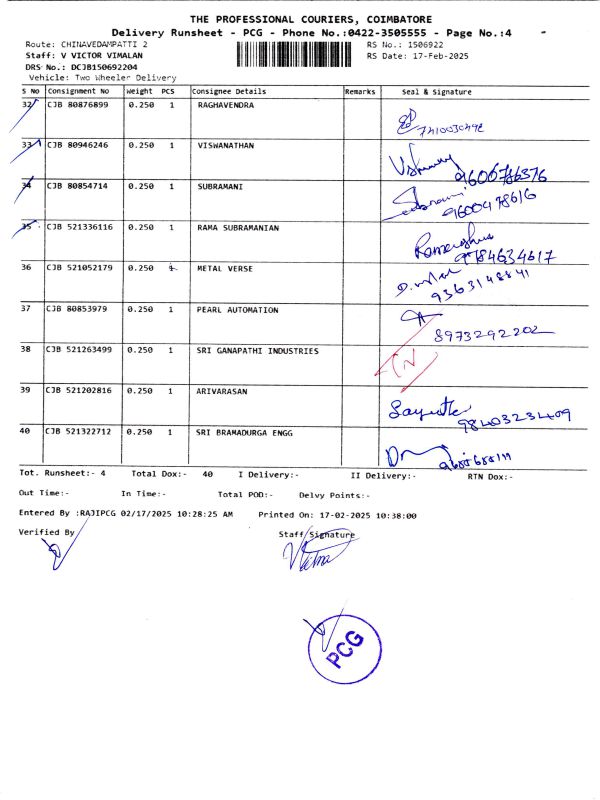 THE PROFESSIONAL COURIERS, COIMBATORE
Delivery Runsheet - PCG - Phone No.:0422-3505555 - Page No.:4 -
Route: CHINAVEDAMPATTI 2 RS No.: 1506922
Staff: V VICTOR VIMALAN RS Date: 17-Feb-2025
DRS No.: DCJB150692204
Vehicle: Two Wheeler Delivery
S No Consignment No Weight PCS Consignee Details Remarks Seal & Signature
32 CJB 80876899 0.250 1 RAGHAVENDRA
33 CJB 80946246 0.250 1 VISWANATHAN
9600786376
34 CJB 80854714 0.250 1 SUBRAMANI
9600478616
35 CJB 521336116 0.250 1 RAMA SUBRAMANIAN
36 CJB 521052179 0.250 1 METAL VERSE
9363148841
37 CJB 80853979 0.250 1 PEARL AUTOMATION
8973292202
38 CJB 521263499 0.250 1 SRI GANAPATHI INDUSTRIES
39 CJB 521202816 0.250 1 ARIVARASAN
9840323409
40 CJB 521322712 0.250 1 SRI BRAMADURGA ENGG
Tot. Runsheet:- 4 Total Dox:- 40 I Delivery:- II Delivery:- RTN Dox:-
Out Time:- In Time:- Total POD:- Delvy Points:-
Entered By :RAJIPCG 02/17/2025 10:28:25 AM Printed On: 17-02-2025 10:38:00
Verified By Staff/Signature
PCG